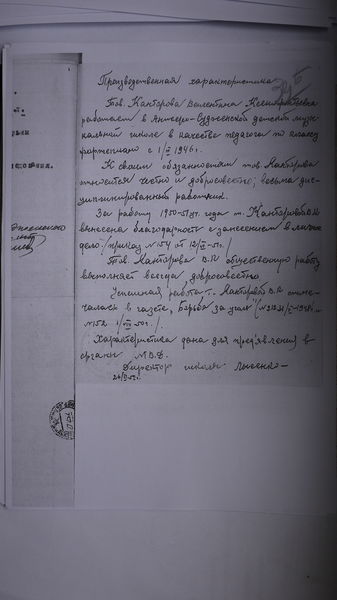 Производственная характеристика
Тов. Канторова Валентина
работает в Анжеро-Судженской детской музы-
кальной школе в качестве педагога по классу
фортепиано с 1/ 1946 г.
К своим обязанностям тов. Канторова
относится честно и добросовестно; весьма дис-
циплинированный работник.
За работу 1950-51 уч. года т. Канторовой В.К.
вынесена благодарность с занесением в личное
дело /приказ № 154 от 12/
Тов. Канторова В.К. общественную работу
выполняет всегда добросовестно
Успешная работа т. Канторовой В.К. отме-
чалась в газете „Борьба за уголь"
№152
Характеристика дана для предъявления в
органы М.В.Д.
Директор школы